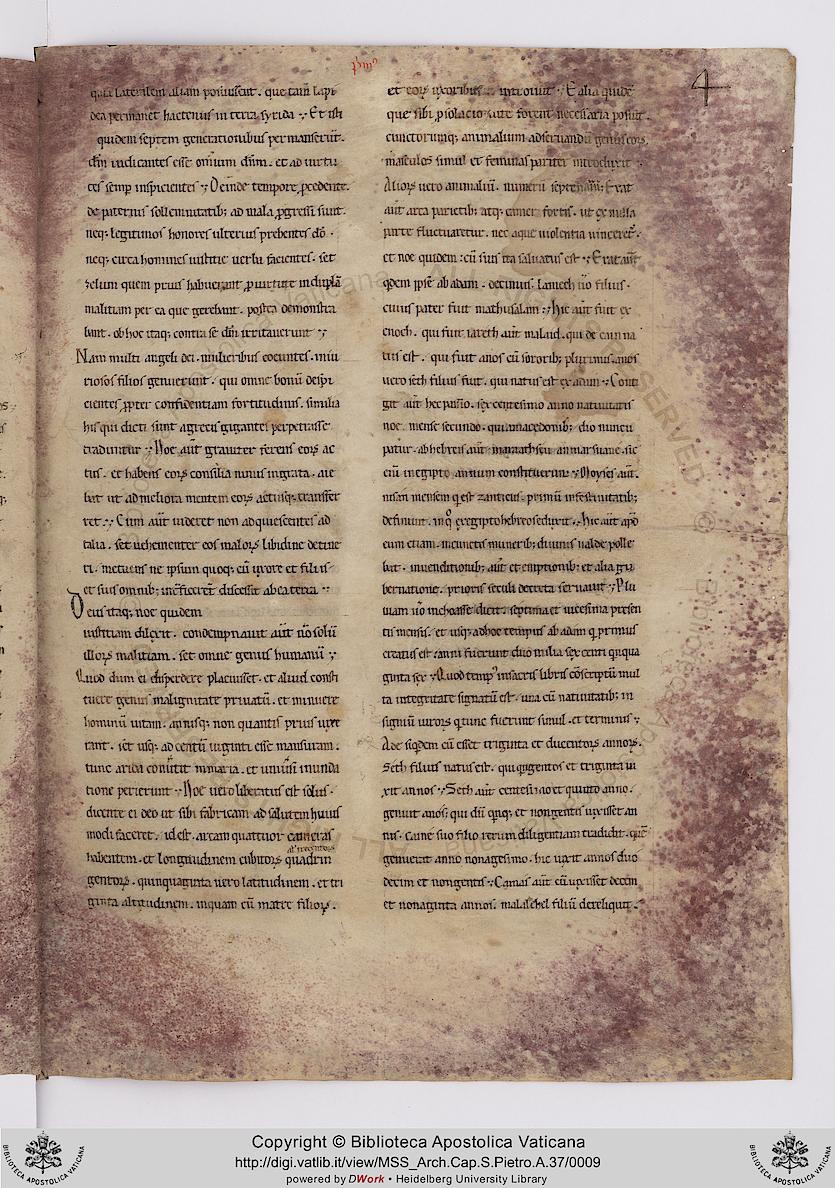 p̄mo
4
quā lateritem aliam posuissent. que tam̄ lapi
dea permanet hactenus in terra syrida. Et isti
quidem septem generationibus permanserūt.
dm̄ iudicantes esse omnium dn̄m. et ad uirtu
tes semp̄ inspicientes. Deinde tempore p̄cedente.
de paternis sollemnitatib; ad mala p̱gressi sunt.
neq; legitimos honores ulterius prebentes dō.
neq; circa homines iustitie uerba facientes. set
zelum quem prius habuerant p̱ uirtute in duplā
malitiam per ea que gerebant. postea demonstra
bant. ob hoc itaq; contra sē dm̄ irritauerunt.
Nam multi angeli dei. mulieribus coeuntes. iniu
riosos filios genuerunt. qui omne bonū despi
cientes p̱pter confidentiam fortitudinis. similia
his qui dicti sunt a grecis gigantes perpetrasse
traduntur. Noe aūt grauiter ferens eoꝝ ac
tus. et habens eoꝝ consilia nimis ingrata. aie
bat ut ad meliora mentem eoꝝ actusq; transfer
ret. Cum aūt uideret non adquiescentes ad
talia. set uehementer eos maloꝝ libidine detine
ri. metuens ne ipsum quoq; cū uxore et filiis
et suis omnib; int̄ficerēt discessit ab ea terra.
Deus itaq; noe quidem
iustitiam dilexit. condempnauit aūt nō solū
illoꝝ malitiam. set omne genus humanū.
Quod dum ei disperdere placuisset. et aliud consti
tuere genus malignitate priuatū. et minuere
hominū uitam. annisq; non quantis prius uixe
rant. set usq; ad centū uiginti esse mansuram.
tunc arida conūtit in maria. et uniūsi inunda
tione perierunt. Noe uero liberatus est solus.
dicente ei deo ut sibi fabricam ad salutem huius
modi faceret. id est. arcam quattuor cameras
habentem. et longitudinem cubitoꝝ quadrin
gentoꝝ. quinquaginta uero latitudinem. et tri
ginta altitudinem. in quam cū matre filioꝝ.
et eoꝝ uxoribus introiuit. Et alia quidē
que sibi p̱ solacio uite forent necessaria posuit.
cunctorumq; animalium ad seruandū genus eoꝝ
masculos simul et feminas pariter introduxit.
Alioꝝ uero animaliū. numerū septenariū. Erat
aūt arca parietib; atq; camera fortis. ut ex nulla
parte fluctuaretur. nec aque uiolentia uinceret̄.
et noe quidem. cū suis ita saluatus est. Erat aūt
q̇dem ipse ab adam. decimus. Lamech ūo filius.
cuius pater fuit mathusalam. Hic aūt fuit ex
enoch. qui fuit iareth aūt malaiel. qui de caina na
tus est. qui fuit anos cū sororib; plurimis. anos
uero seth filius fuit. qui natus est ex adam. Conti
git aūt hec passio. sexcentesimo anno natiuitatis
noe. mense secundo. qui a macedonib; dio nuncu
patur. ab hebreis aūt marsuane. sic
enī in egipto annum constituerunt. Moyses aūt.
nisan mensem q̇ est xanticus. primū in festiuitatib;
definiuit. in q̇ ex egipto hebreos eduxit. Hic aūt apd̄
eum etiam. in cunctis munerib; diuinis ualde polle
bat. in uenditionib; aūt et emptionib; et alia gu
bernatione. prioris seculi decreta seruauit. Plu
uiam ūo inchoasse dicit. septima et uicesima presen
tis mensis. et usq; ad hoc tempus ab adam q̇ primus
creatus est. anni fuerunt duo milia sexcenti quinqua
ginta sex. Quod temp' in sacris libris cōscriptū mul
ta integritate signatū est. una cū natiuitatib; in
signiū uiroꝝ q̇ tunc fuerunt simul. et terminis.
Ade siq̇dem cū esset triginta et ducentoꝝ annoꝝ.
Seth filius natus est. qui q̇ngentos et triginta ui
xit annos. Seth aūt centesimo et quinto anno.
genuit anos; qui dū q̇nq; et nongentis uixisset an
nis. caine suo filio rerum diligentiam tradidit. quē
genuerat anno nonagesimo. hic uixit annos duo
decim et nongentis. Cainas aūt cū uixisset decem
et nonaginta annos. malalehel filiū dereliquit.
Copyright © Biblioteca Apostolica Vaticana
http://digi.vatlib.it/view/MSS_Arch.Cap.S.Pietro.A.37/0009
powered by DWork • Heidelberg University Library
BIBLIOTECA APOSTOLICA VATICANA
BIBLIOTECA APOSTOLICA VATICANA